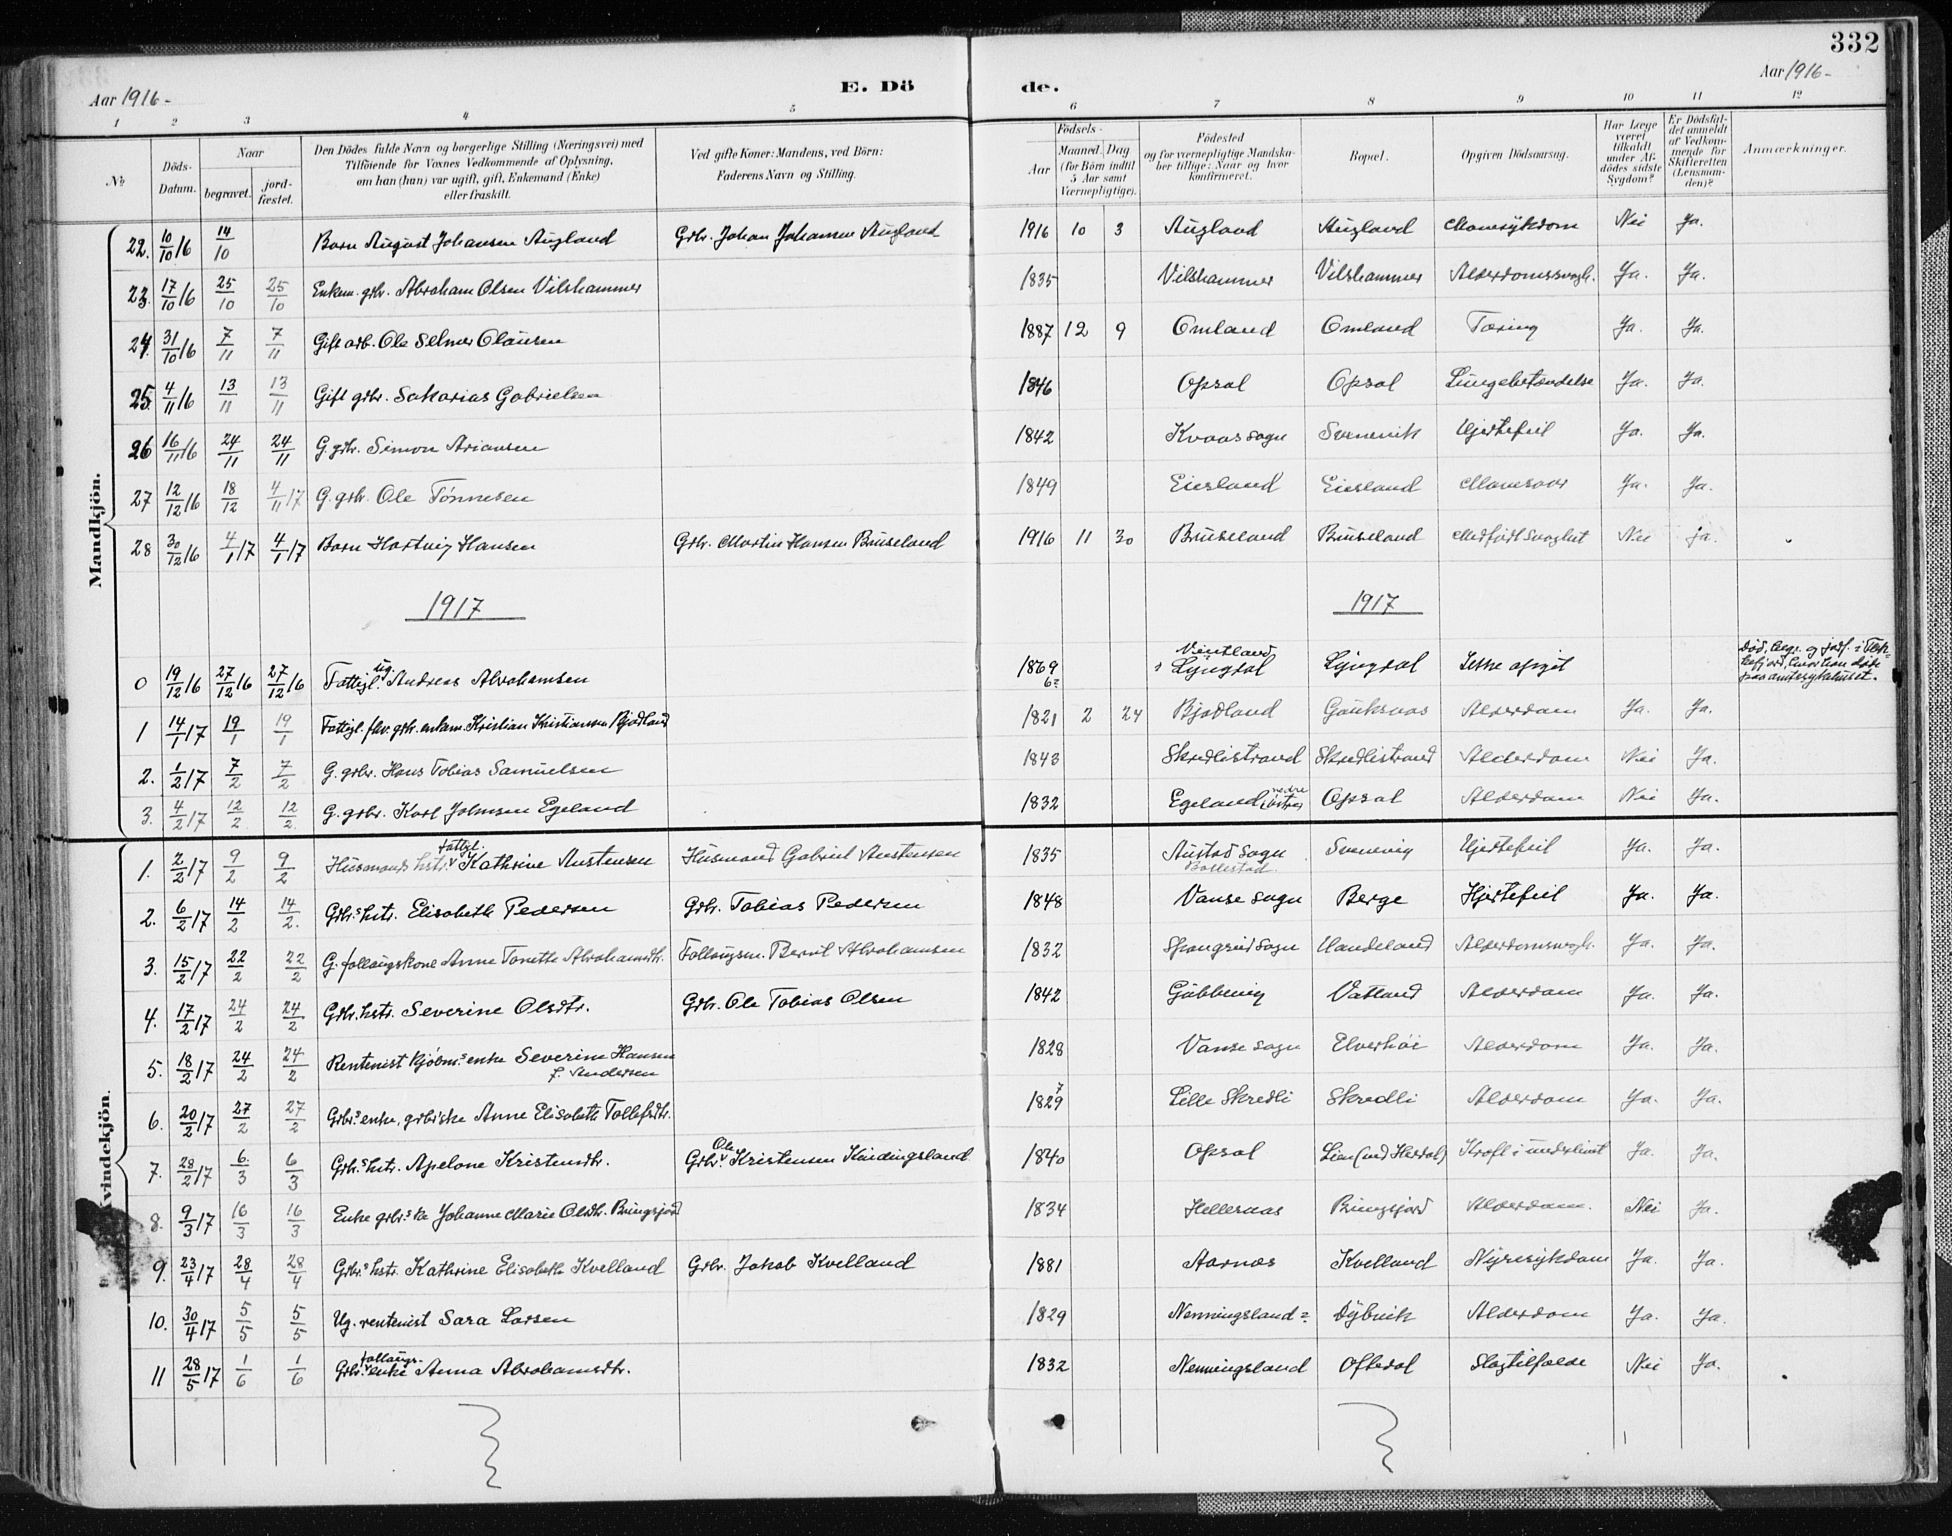 332
Aar 1916- E. Dö de. Aar 1916-
1 2 3 4 5 6 7 8 9 10 11 12
№
Döds-Datum.
Naar begravet. jordfæstet.
Den Dödes fulde Navn og borgerlige Stilling (Næringsvei) med
Tilföiende for Voxnes Vedkommende af Oplysning,
om han (hun) var ugift, gift, Enkemand (Enke)
eller fraskilt.
Ved gifte Koner: Mandens, ved Börn:
Faderens Navn og Stilling.
Födsels-
Aar Maaned. Dag
(for Börn indtil 5 Aar samt Værnepligtige).
Födested
og for værnepligtige Mandskaber tillige: Naar og hvor konfirmeret.
Bopæl.
Opgiven Dödsaarsag.
Har Læge været tilkaldt under Afdödes sidste Sygdom?
Er Dödsfaldet anmeldt af Vedkommende for Skifteretten (Lensmanden)?
Anmærkninger.
Mandkjön.
22. 10/10 16 14/10 Barn August Johansen Augland Grbr. Johan Johansen Augland 1916 10 3 Augland Augland Mavesykdom Nei Ja.
23. 17/10 16 25/10 25/10 Enkem. grbr. Abraham Olsen Vilshammer 1835 Vilshammer Vilshammer Alderdomssvagh. Ja. Ja.
24. 31/10 16 7/11 7/11 Gift arb. Ole Selmer Olausen 1887 12 9 Omland Omland Tæring Ja. Ja.
25. 4/11 16 13/11 13/11 Gift grbr. Sakarias Gabrielsen 1846 Opsal Opsal Lungebetændelse Ja. Ja.
26 16/11 16 24/11 24/11 G. grbr. Simon Ariansen 1842 Kvaas sogn Svenevik Hjertefeil Ja. Ja.
27 12/12 16 18/12 4/11 17 G. grbr. Ole Tønnesen 1849 Eiesland Eiesland Mavesaar Ja. Ja.
28 30/12 16 4/1 17 4/1 17 Barn Hartvig Hansen Grbr. Martin Hansen Bruseland 1916 11 30 Bruseland Bruseland Medfødt svaghet Nei ja.
1917 1917
0 19/12 16 27/12 16 27/12 16 Fattigl. ug. Andreas Abrahamsen 1869 6= Vintland i Lyngdal Lyngdal Ikke opgit Død, begr. og jordf. i Flekkefjord, hvor han døde paa amtssykehuset.
1 14/1 17 19/1 19/1 Fattigl. fhv. grbr. enkem. Kristian Kristiansen Bjødland 1821 2 24 Bjødland Gauksaas Alderdom Ja. Ja.
2. 1/2 17 7/2 7/2 G. grbr. Hans Tobias Samuelsen 1843 Skredlistrand Skredlistrand Alderdom Nei Ja.
3. 4/2 17 12/2 12/2 G. grbr. Karl Johnsen Egeland 1832 Egeland nedre østre Opsal Alderdom Nei Ja.
Kvindekjön.
1. 2/2 17 9/2 9/2 Husmands hstr. fattigl. Kathrine Austensen Husmand Gabriel Austensen 1835 Austad sogn Bollestad Svenevig Hjertefeil Ja. Ja.
2. 6/2 17 14/2 14/2. Grbr.s hstr. Elisabeth Pedersen Grbr. Tobias Pedersen 1848 Vanse sogn Berge Hjertefeil Ja. Ja.
3. 15/2 17 22/2 22/2 G. follaugskone Anne Tonette Abrahamsdtr. Follaugsm. Bernt Abrahamsen 1832 Spangreid sogn Haudeland Alderdomssvagh. Ja. Ja.
4. 17/2 17 24/2 24/2 Grbr. hstr. Severine Olsdtr. Grbr. Ole Tobias Olsen 1842 Gübbevig Vatland Alderdom Ja. Ja.
5. 18/2 17 24/2 24/2 Rentenist kjøbm.s enke Severine Hansen f. Andersen 1828 Vanse sogn Elverhøi Alderdom Ja. Ja.
6. 20/2 17 27/2 27/2 Grbr.s enke, grbrske Anne Elisabeth Tollefsdtr. 1829 7 Lille Skredli Skredli Alderdom Ja. Ja.
7. 28/2 17 6/3 6/3 Grbr.s hstr. Apelone Kristensdtr. Grbr. Ole Kristensen Kaidingsland 1840 Opsal Lian (ved Herdal) Kræft i underlivet Ja. Ja.
8. 9/3 17 16/3 16/3 Enke grbr.ske Johanne Marie Olsdtr. Bringsjord 1834 Helleraas Bringsjord Alderdom. Nei Ja.
9. 23/4 17 28/4 28/4 Grbr.s hstr. Kathrine Elisabeth Kvelland Grbr. Jakob Kvelland 1881 Aarnes Kvelland Nyresykdom Ja. Ja.
10. 30/4 17 5/5 5/5 Ug. rentenist Sara Larsen 1829 Nenningsland= Dybvik Alderdom Ja. Ja.
11 28/5 17 1/6 1/6 Grbr. follaugs. enke Anna Abrahamsdtr. 1832 Nenningsland Oftedal Slagtilfælde Nei Ja.